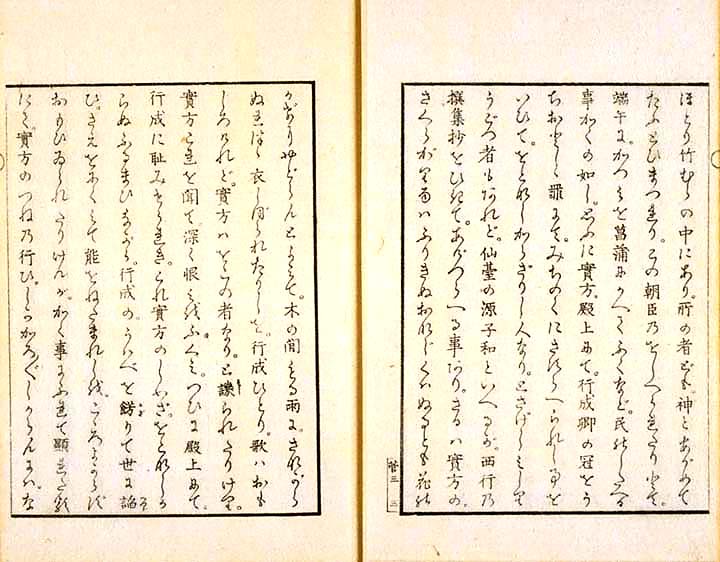 ほとり竹むらの中にあり。所の者ども。神とあがめて
たふとひまつれり。この朝臣のをしへられたりとて。
端午に。かつみを菖蒲にかへてふくなど。民のしたへる
事かくの如し。しかるに實方。殿上にて。行成卿の冠をう
ちおとしゝ罪にて。みちのくにさすらへられし事を
いひて。人なり。とさげしみし
うごつ者もあれど。仙臺の源子和といへるが。西行の
撰集抄をひきて。あげつらへる事あり。さるは實方の
さくらがり雨はふりきぬおなじくはぬるとも花の
菅三 三
かげにやどらんとよみて。木の間もる雨に。さながら
衣しぼられたりしを。行成ひとり。歌はおも
しろけれど。實方はをこの者なり。と譏られたりけり。
實方これを聞て。深く恨みをふくみ。つひに殿上にて。
行成に恥みせられき。これ實方のしわざをこれしか
らぬふるまひながら。行成の。うはべを錺りて世に諂
ひ。能をねたまれしを。こゝろよからず
おもひゐられたりけんが。かく事にふれて顯れたる
にて。實方のつねの行ひ。しかかろ〲しからんには。な